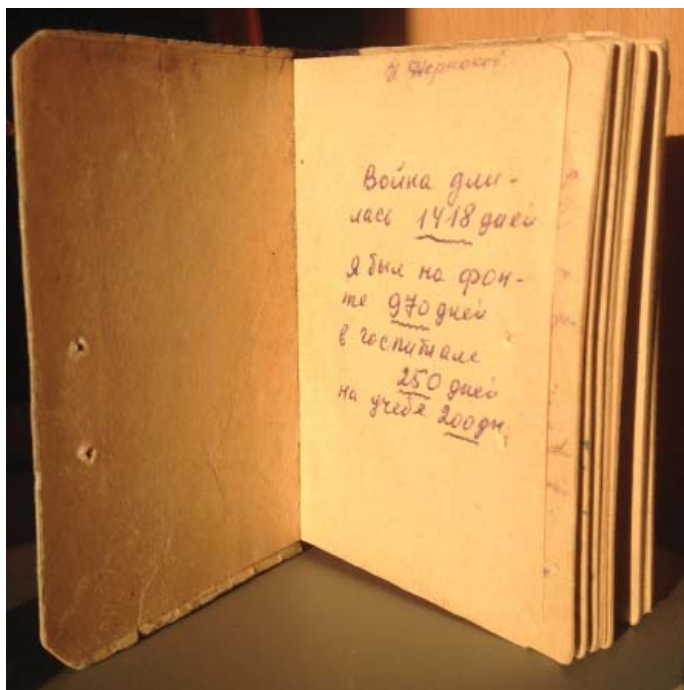 Война дли-
лась 1418 дней
Я был на фон-
те 970 дней
в госпитале
250 дней
на учебе 200 дн.